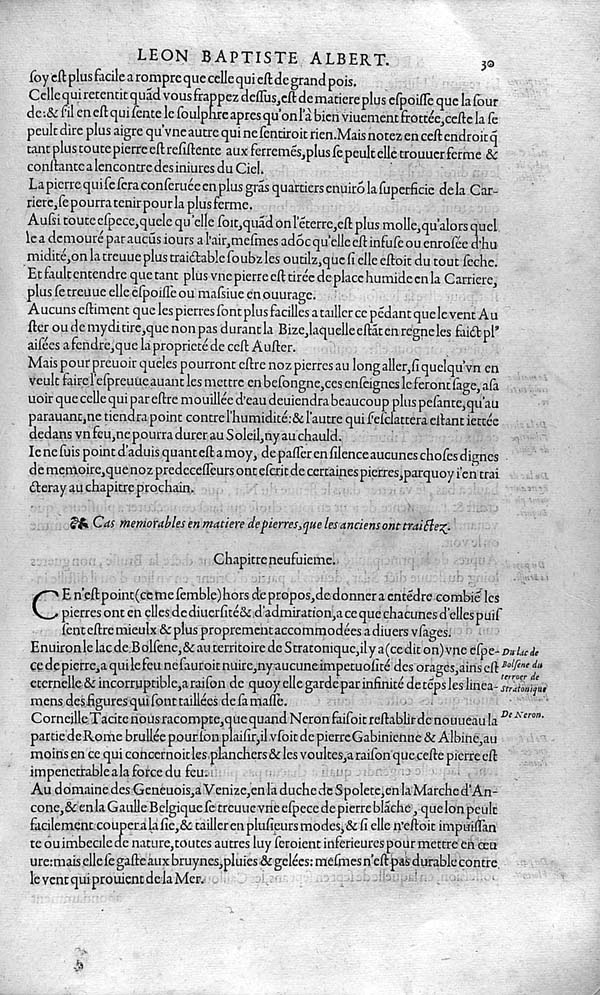 LEON BAPTISTE ALBERT. 30
ſoy eſt plus facile a rompre que celle qui eſt de grand pois.
Celle qui retentit quãd vous frappez deſſus, eſt de matiere plus eſpoiſſe que la ſour
de: & ſ'il en eſt qui ſente le ſoulphre apres qu'on l'à bien viuement frottée, ceſte la ſe
peult dire plus aigre qu'vne autre qui ne ſentiroit rien. Mais notez en ceſt endroit q̃
tant plus toute pierre eſt reſiſtente aux ferremẽs, plus ſe peult elle trouuer ferme &
conſtante a lencontre des iniures du Ciel.
La pierre qui ſe ſera conſeruée en plus grãs quartiers enuirõ la ſuperficie de la Car-
riere, ſe pourra tenir pour la plus ferme.
Auſsi toute eſpece, quele qu'elle ſoit, quãd on l'éterre, eſt plus molle, qu'alors quel
le a demouré par aucũs iours a l'air, meſmes adõc qu'elle eſt infuſe ou enroſée d'hu
midité, on la treuue plus traictable ſoubz les outilz, que ſi elle eſtoit du tout ſeche.
Et fault entendre que tant plus vne pierre eſt tirée de place humide en la Carriere,
plus ſe treuue elle eſpoiſſe ou maſsiue en ouurage.
Aucuns eſtiment que les pierres ſont plus facilles a tailler ce pédant que le vent Au
ſter ou de mydi tire, que non pas durant la Bize, laquelle eſtãt en regne les faict pl'
aiſées a fendre, que la proprieté de ceſt Auſter.
Mais pour preuoir quelles pourront eſtre noz pierres au long aller, ſi quelqu'vn en
veult faire l'eſpreuue auant les mettre en beſongne, ces enſeignes le feront ſage, aſa
uoir que celle qui par eſtre mouillée d'eau deuiendra beaucoup plus peſante, qu'au
parauant, ne tiendra point contre l'humidité: & l'autre qui ſ'eſclattera eſtant iettée
dedans vn feu, ne pourra durer au Soleil, ny au chauld.
Ie ne ſuis point d'aduis quant eſt a moy, de paſſer en ſilence aucunes choſes dignes
de memoire, que noz predeceſſeurs ont eſcrit de certaines pierres, parquoy i'en trai
cteray au chapitre prochain.
Cas memorables en matiere de pierres, que les anciens ont traictez.
Chapitre neufuieme.
CE n'eſt point (ce me ſemble) hors de propos, de donner a entẽdre combiẽ les
pierres ont en elles de diuerſité & d'admiration, a ce que chacunes d'elles puiſ
ſent eſtre mieulx & plus proprement accommodées a diuers vſages.
Enuiron le lac de Bolſene, & au territoire de Stratonique, il y a (ce dit on) vne eſpe-
ce de pierre, a qui le feu ne ſauroit nuire, ny aucune impetuoſité des orages, ains eſt
eternelle & incorruptible, a raiſon de quoy elle garde par infinité de tẽps les linea-
mens des figures qui ſont taillées de ſa maſſe.
Du lac de
Bolſene du
terroer de
Stratonique
Corneille Tacite nous racompte, que quand Neron faiſoit reſtablir de nouueau la
partie de Rome brullée pour ſon plaiſir, il vſoit de pierre Gabinienne & Albine, au
moins en ce qui concernoit les planchers & les voultes, a raiſon que ceſte pierre eſt
impenetrable a la force du feu.
De Neron.
Au domaine des Geneuois, a Venize, en la duche de Spolete, en la Marche d'An-
cone, & en la Gaulle Belgique ſe treuue vne eſpece de pierre blãche, que lon peult
facilement couper a la ſie, & tailler en pluſieurs modes, & ſi elle n'eſtoit impuiſſan
te ou imbecile de nature, toutes autres luy ſeroient inferieures pour mettre en œu
ure: mais elle ſe gaſte aux bruynes, pluies & gelées: meſmes n'eſt pas durable contre
le vent qui prouient de la Mer.